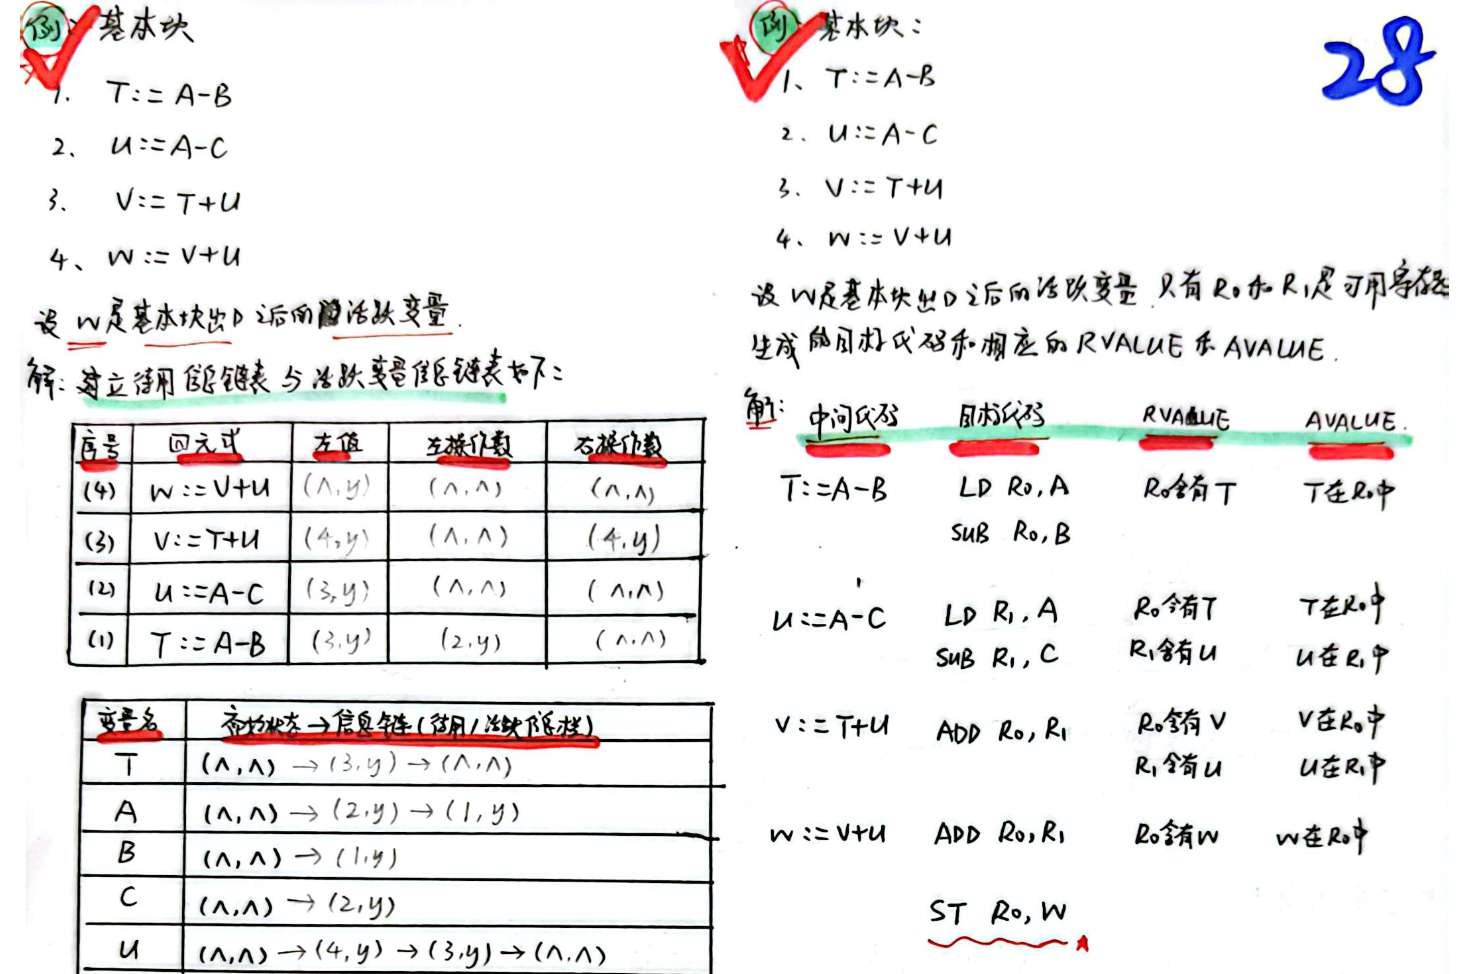 例： 基本块
1. T:=A-B
2、 U:=A-C
3. V:=T+U
4、 W:=V+U
设 W是基本块出口之后的活跃变量.
解: 建立待用信息链表与活跃变量信息链表如下:
序号 四元式 左值 左操作数 右操作数
(4) W:=V+U (∧,y) (∧,∧) (∧,∧)
(3) V:=T+U (4,y) (∧,∧) (4,y)
(2) U:=A-C (3,y) (∧,∧) (∧,∧)
(1) T:=A-B (3,y) (2,y) (∧,∧)
变量名 初始状态→信息链(待用/活跃信息栏)
T (∧,∧)→(3,y)→(∧,∧)
A (∧,∧)→(2,y)→(1,y)
B (∧,∧)→(1,y)
C (∧,∧)→(2,y)
U (∧,∧)→(4,y)→(3,y)→(∧,∧)
28
例： 基本块:
1、T:=A-B
2. U:=A-C
3. V:=T+U
4、W:=V+U
设 W是基本块出口之后的活跃变量.只有R0和R1是可用寄存器
生成的目标代码和相应的RVALUE和AVALUE.
解: 中间代码 目标代码 RVALUE AVALUE.
T:=A-B LD R0,A R0含有T T在R0中
SUB R0,B
U:=A-C LD R1,A R0含有T T在R0中
SUB R1,C R1含有U U在R1中
V:=T+U ADD R0,R1 R0含有V V在R0中
R1含有U U在R1中
W:=V+U ADD R0,R1 R0含有W W在R0中
ST R0,W